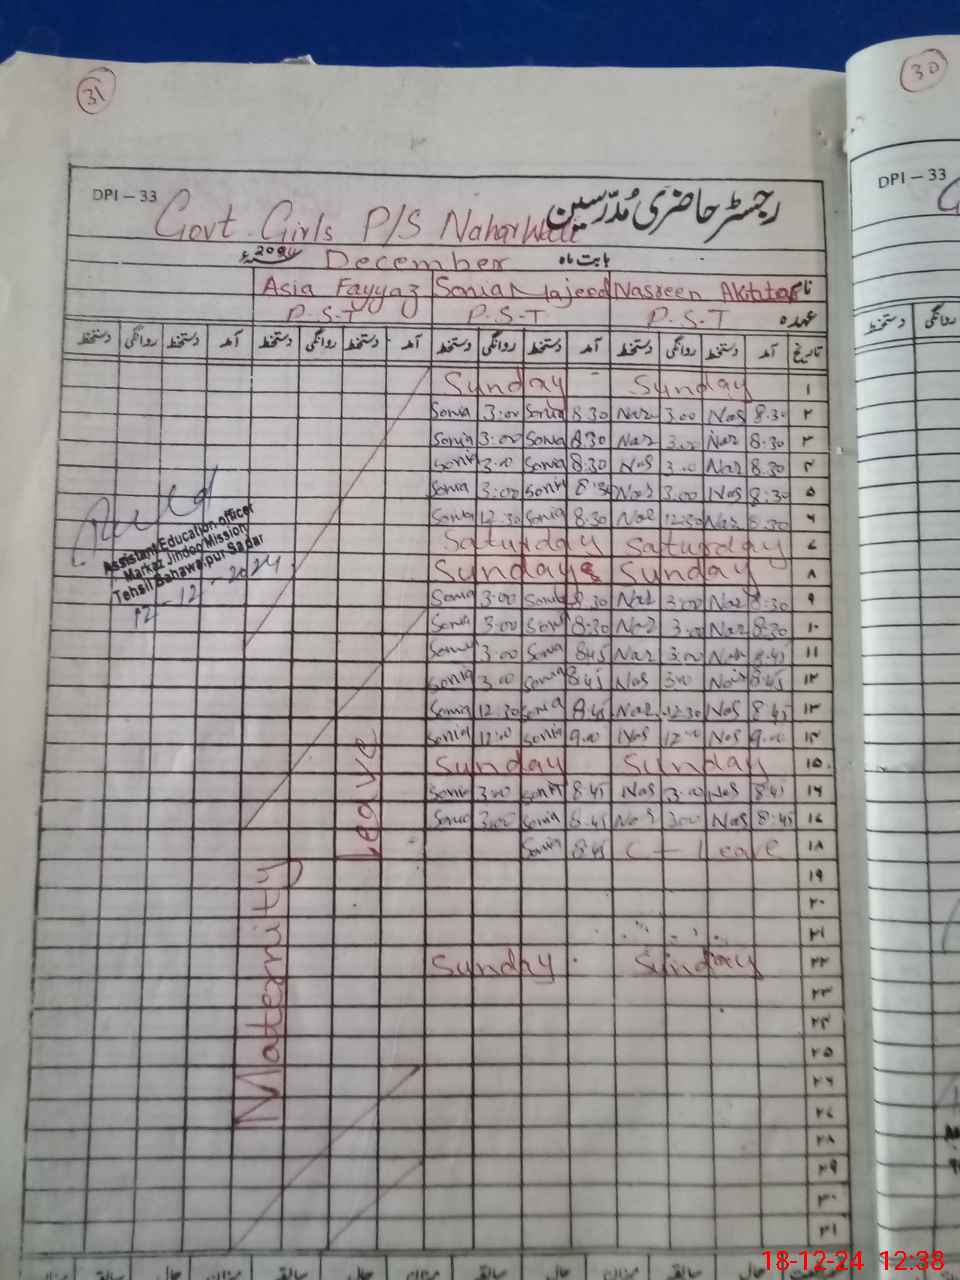 31
30
DPI – 33
رجسٹر حاضری مُدرّسین
DPI – 33
Govt Girls P/S Naharwali
بابت ماہ December 2024ء
نام Nasreen Akhtar Sonia Majeed Asia Fayyaz
عہدہ P.S.T P.S.T P.S.T
تاریخ آمد دستخط روانگی دستخط آمد دستخط روانگی دستخط آمد دستخط روانگی دستخط آمد دستخط روانگی دستخط
روانگی دستخط
Sunday Sunday ۱
Sonia 3:00 Sonia 8.30 Nas 3.00 Nas 8.30 ۲
Sonia 3:00 Sonia 8.30 Nas 3.00 Nas 8.30 ۳
Sonia 3.00 Sonia 8.30 Nas 3.00 Nas 8.30 ۴
Sonia 3:00 Sonia 8:30 Nas 3.00 Nas 8:30 ۵
Sonia 12.30 Sonia 8.30 Nas 12:30 Nas 8.30 ۶
Saturday Saturday ۷
Sunday Sunday ۸
Sonia 3:00 Sonia 8.30 Nas 3:00 Nas 8:30 ۹
Sonia 3:00 Sonia 8:30 Nas 3.00 Nas 8:30 ۱۰
Sonia 3:00 Sonia 8:45 Nas 3:00 Nas 8.45 ۱۱
Sonia 3.00 Sonia 8:45 Nas 3:00 Nas 8:45 ۱۲
Sonia 12.30 Sonia 8.45 Nas 12:30 Nas 8.45 ۱۳
Sonia 12:00 Sonia 9.00 Nas 12:00 Nas 9.00 ۱۴
Sunday Sunday ۱۵
Sonia 3:00 Sonia 8.45 Nas 3.00 Nas 8:45 ۱۶
Sonia 3:00 Sonia 8.45 Nas 3:00 Nas 8:45 ۱۷
Sonia 8:45 C - Leave ۱۸
۱۹
۲۰
۲۱
Sunday Sunday ۲۲
۲۳
۲۴
۲۵
۲۶
۲۷
۲۸
۲۹
۳۰
۳۱
Assistant Education officer
Markaz Jindoo Mission
Tehsil Bahawalpur Sadar
12-12-2024
Maternity Leave
میزان حال سابقہ میزان حال سابقہ میزان حال سابقہ میزان حال
18-12-24 12:38